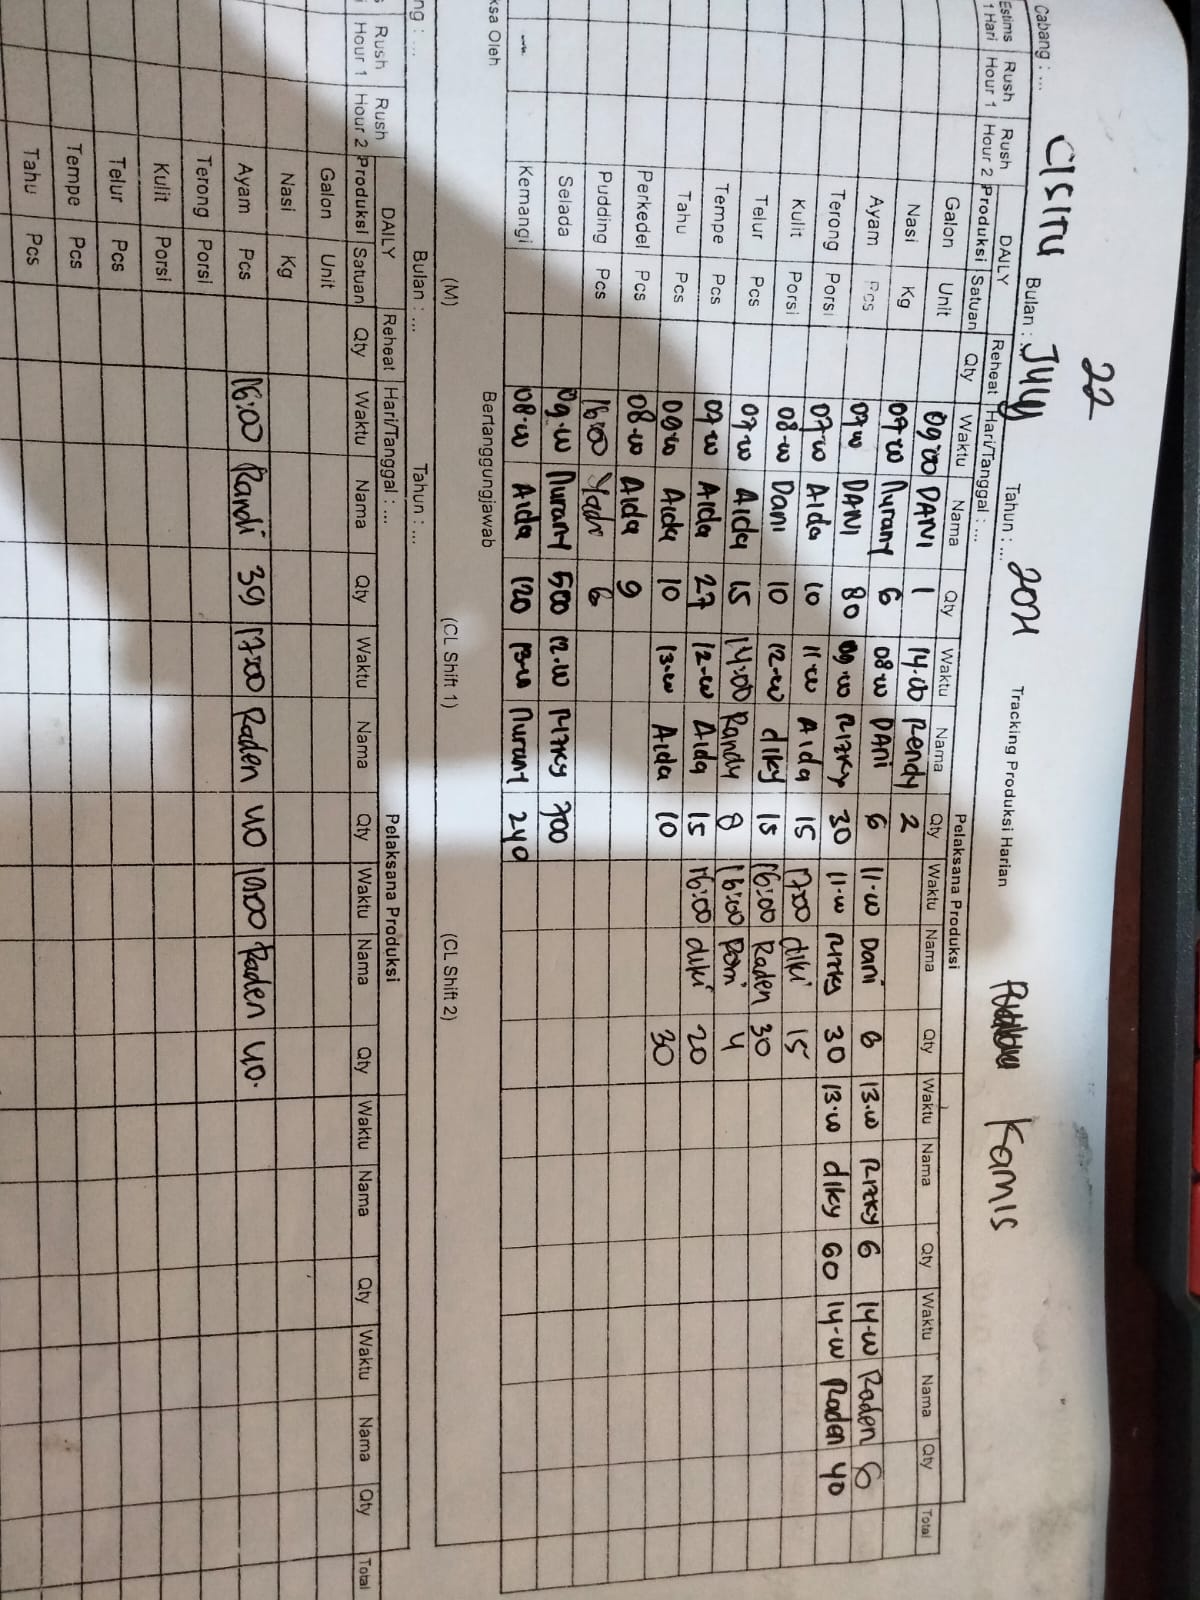 22
Cabang : ... CISITU Bulan : July Tahun : ... 2021 Tracking Produksi Harian Kamis
Estims Rush Rush DAILY Reheat Hari/Tanggal : ... Pelaksana Produksi
1 Hari Hour 1 Hour 2 Produksi Satuan Qty Waktu Nama Qty Waktu Nama Qty Waktu Nama Qty Waktu Nama Qty Waktu Nama Qty Total
Galon Unit 09:00 DANI 1 14.00 Rendy 2
Nasi Kg 07.00 Nurany 6 08.00 DANI 6 11.00 Dani 6 13.00 RIZKY 6 14.00 Raden 6
Ayam Pcs 07.00 DANI 80 09.00 RIZKY 30 11.00 RIZKY 30 13.00 dIky 60 14.00 Raden 40
Terong Porsi 07.00 AIda 10 11.00 AIda 15 17:00 diki 15
Kulit Porsi 08.00 Dani 10 12.00 dIky 15 16:00 Raden 30
Telur Pcs 07.00 AIda 15 14:00 Randy 8 16:00 4
Tempe Pcs 07.00 AIda 27 12.00 AIda 15 16:00 diki 20
Tahu Pcs 10 13.00 AIda 10 30
Perkedel Pcs 08.00 AIda 9
Pudding Pcs 16:00 6
Selada 09.00 Nurany 500 12.00 RIZKY 700
Kemangi 08.00 AIda 120 13.00 Nurany 240
ksa Oleh Bertanggungjawab
(M) (CL Shift 1) (CL Shift 2)
ng : ... Bulan : ... Tahun : ...
s Rush Rush DAILY Reheat Hari/Tanggal : ... Pelaksana Produksi
i Hour 1 Hour 2 Produksi Satuan Qty Waktu Nama Qty Waktu Nama Qty Waktu Nama Qty Waktu Nama Qty Waktu Nama Qty Total
Galon Unit
Nasi Kg
Ayam Pcs 16:00 Randi 39 17:00 Raden 40 19:00 Raden 40.
Terong Porsi
Kulit Porsi
Telur Pcs
Tempe Pcs
Tahu Pcs